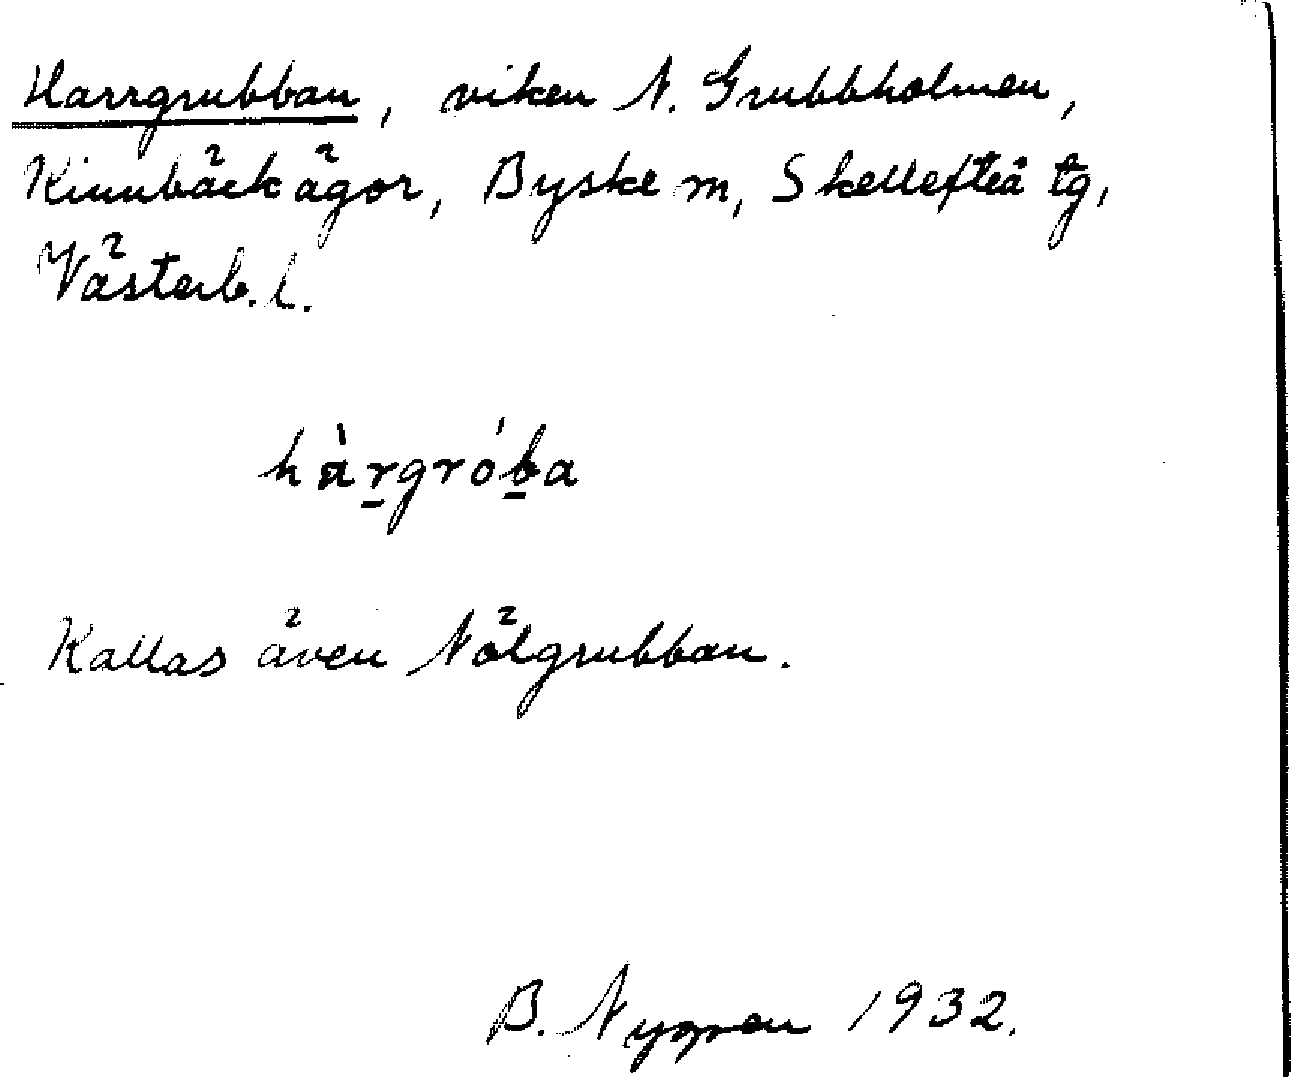 Harrgrubban, viken N. Grubbholmen,
Kinnbäck ägor, Byske m, Skellefteå tg,
Västerb. l.
hàr̠grób̠a
Kallas även Nölgrubban.
B. Nygren 1932.